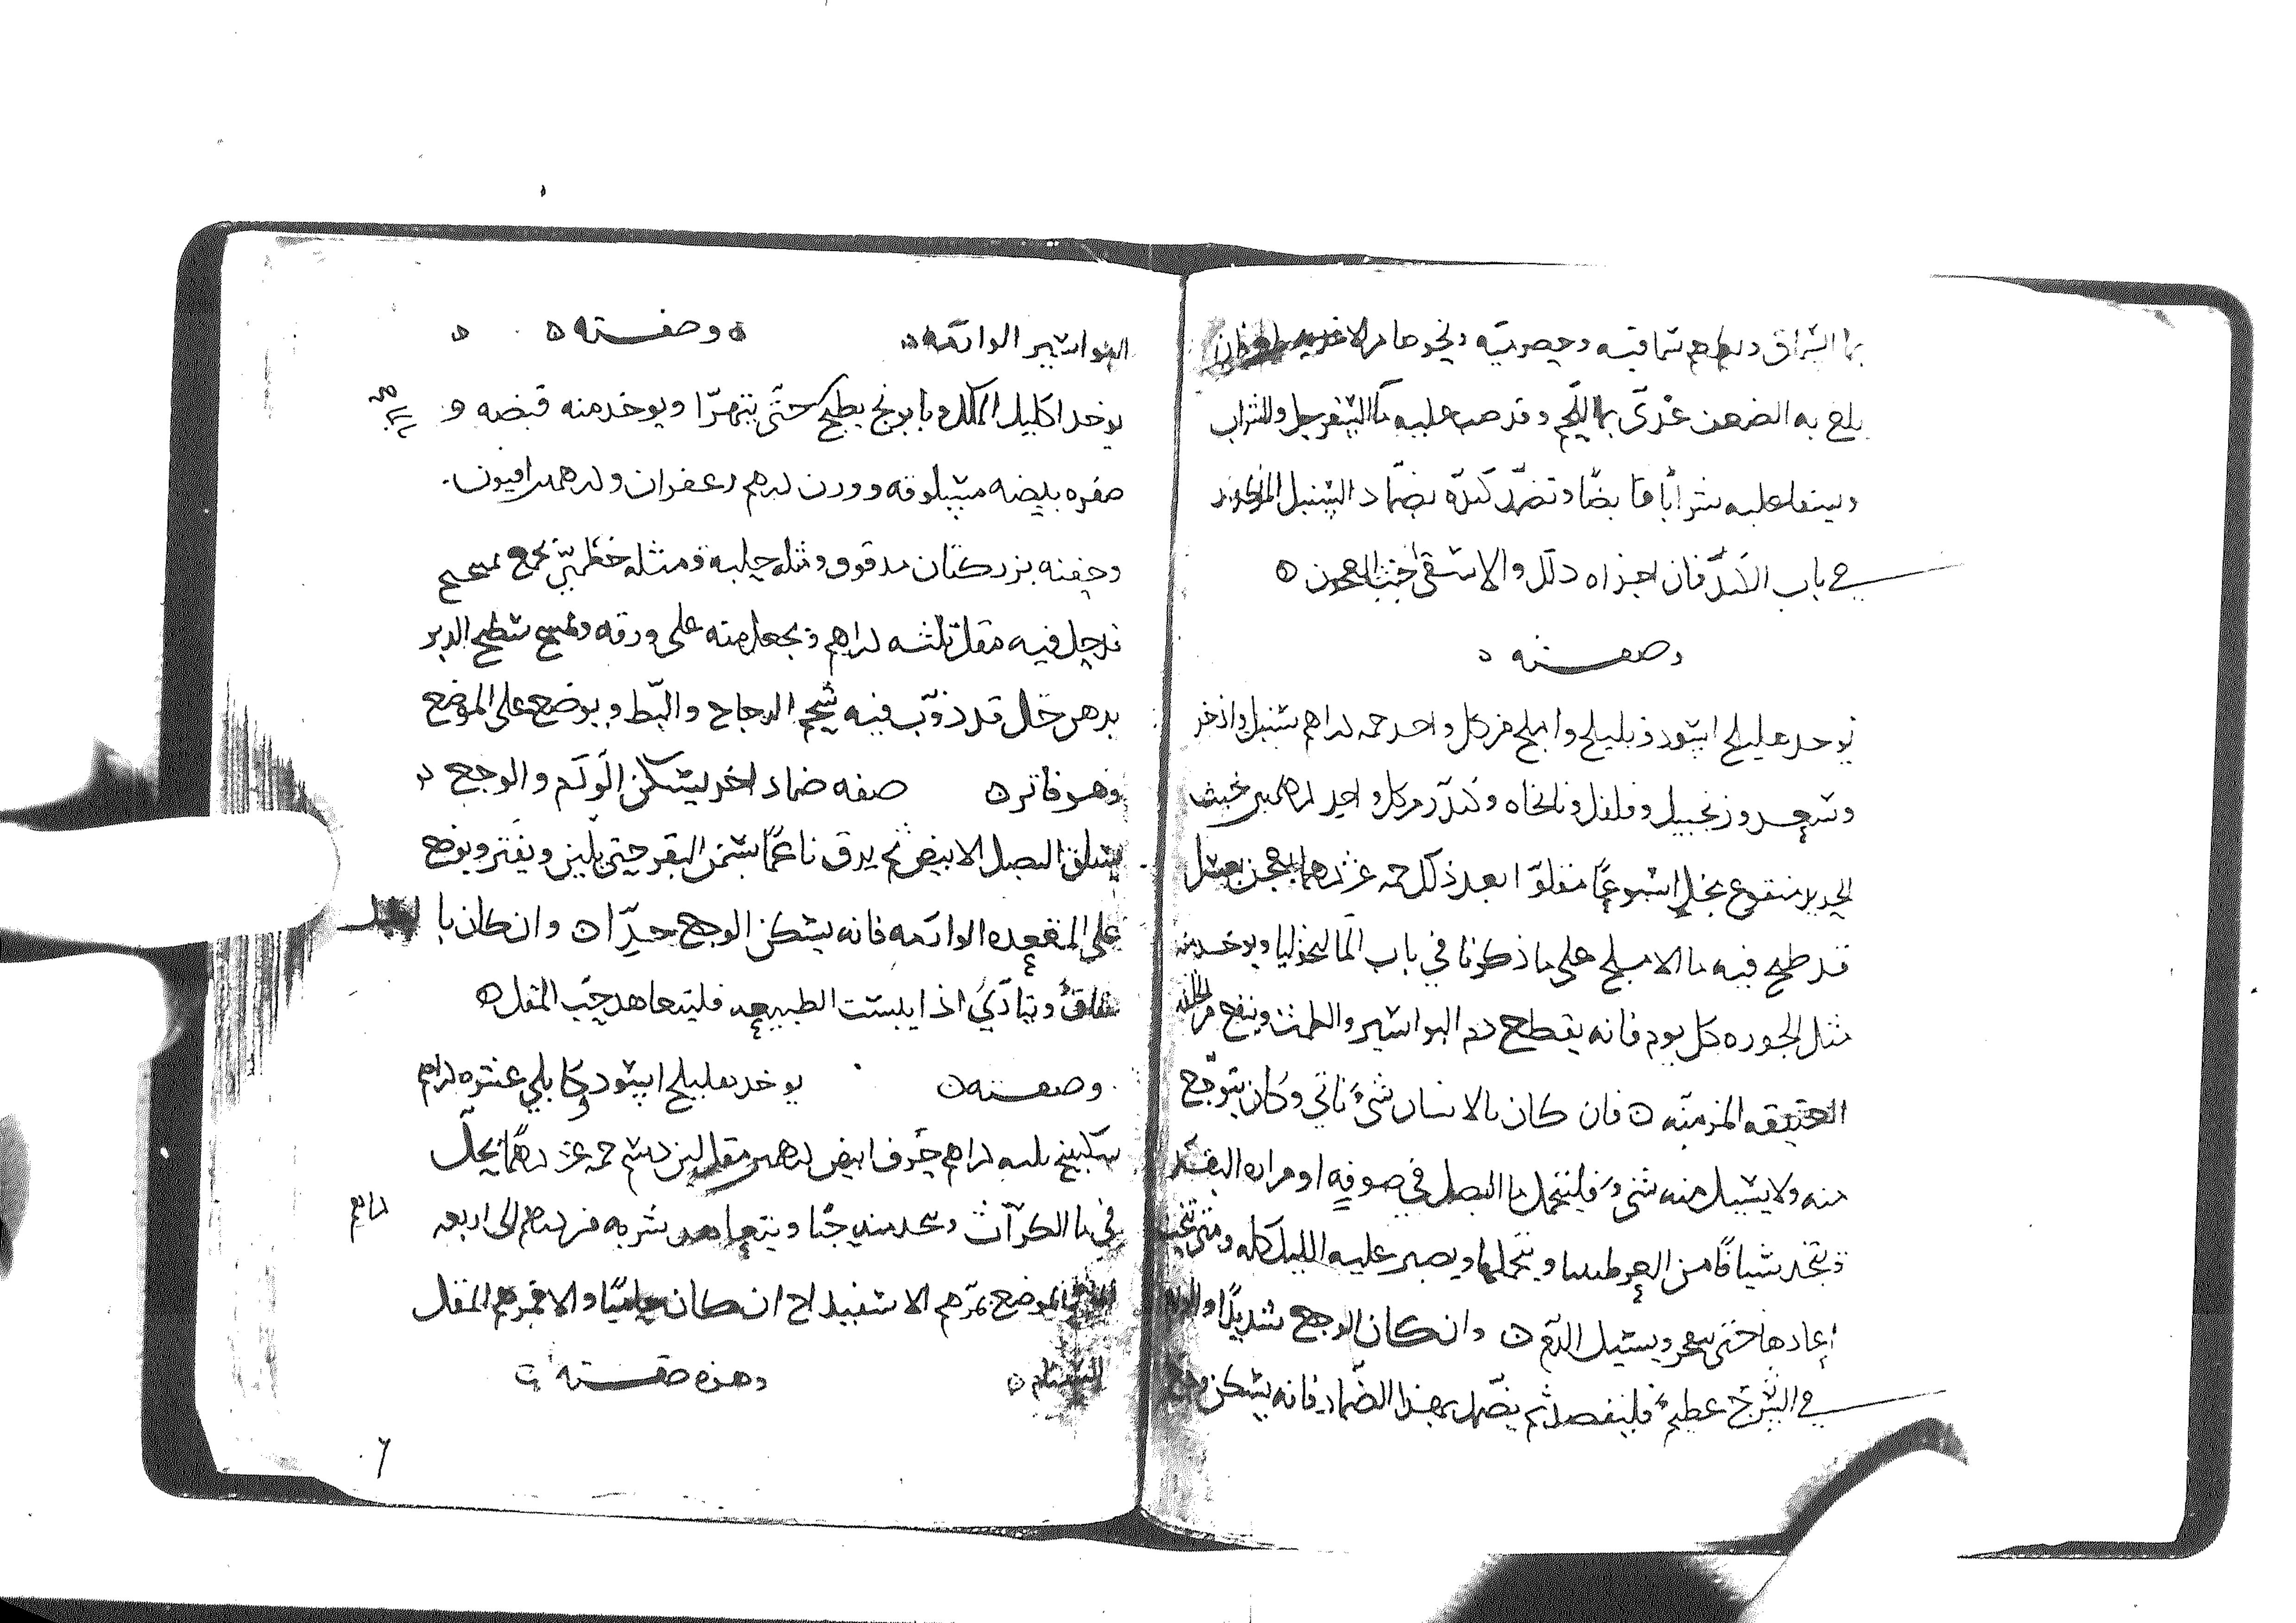 بما السماق ويطعم سماقيه وحصرميه ونحوها من الاغذيه فان
بلغ به الضعف غذى بما اللحم وقد صب عليه ما السفرجل والشراب
ويسقا عليه شرابًا قابضًا وتضمد كبده بضماد السنبل المذكور
في باب الكبد فان اجزاه ذلك والا سقى خبث المعجون
وصفته
يوخد هليلج اسود وبليلج واملج من كل واحد خمسه دراهم سنبل واذخر
وسعد وزنجبيل وفلفل ونانخاه وكندر من كل واحد درهمين خبث
الحديد منقوع بخل اسبوعًا مقلوّا بعد ذلك خمسه عشر درهما يعجن بعسل
قد طبخ فيه ما الاملج على ما ذكرنا في باب الماليخوليا ويوخد منه
مثل الجوزه كل يوم فانه يقطع دم البواسير والطمث وينفع من
العتيقه المزمنه فان كان بالانسان شىء ناتي وكان يتوجع
منه ولا يسيل منه شىء فليتحمل ما البصل في صوفه او مراره البقر
ويتخد شيافًا من العرطنيثا ويتحملها ويصبر عليه الليل كله ومتى
اعادها حتى ويسيل الدم وان كان الوجع شديدًا والورم
في الشرج عظيم فليفصد ثم يضمد بهذا الضماد فانه يسكن وجع
البواسير الوارمه وصفته
يوخد اكليل الملك وبابونج يطبخ حتى يتهرّا ويوخد منه قبضه و
صفره بيضه مسلوقه ووزن درهم زعفران ودرهم افيون
وحفنه بزر كتان مدقوق ومثله حلبه ومثله خطمي يجمع
قد حل فيه مقل ثلثه دراهم ويجعل منه على ورقه ويمسح سطح الدبر
بدهن خل قد ذوّب فيه شحم الدجاج والبط ويوضع على الموضع
وهو فاتر صفه ضماد اخر يسكن الورم والوجع
يسلق البصل الابيض ثم يدق ناعمًا بسمن البقر حتى يلين ويفتر ويوضع
على المقعده الوارمه فانه يسكن الوجع جدّا وان كان با
شقاق ويتاذي اذا يبست الطبيعه فليتعاهد حب المقل
وصفته يوخد هليلج اسود وكابلي عشره دراهم
سكبينج ثلثه دراهم حرف ابيض درهمين مقل لين دسم خمسه عشر درهمًا يحل
في ما الكراث ويتخد منه حبًا ويتعاهد شربه من درهم الى اربعه
دراهم
الموضع بمرهم الاسفيداج ان كان حاميًا والا فمرهم المقل
والسنام وهذه صفته